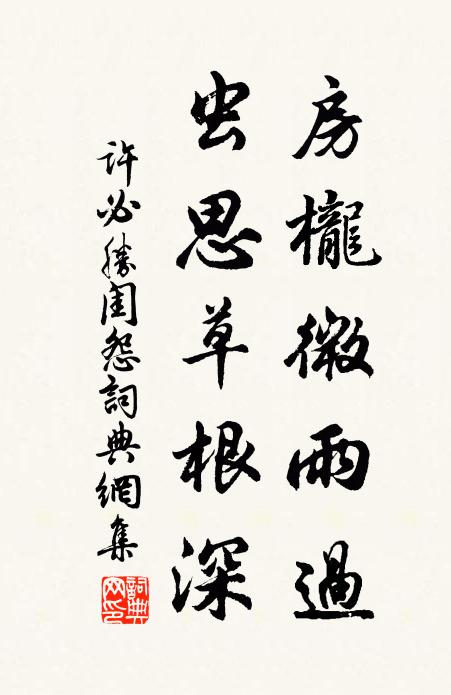 房櫳微雨過
虫思草根深
許必勝閨怨詞典網集
詞典網印